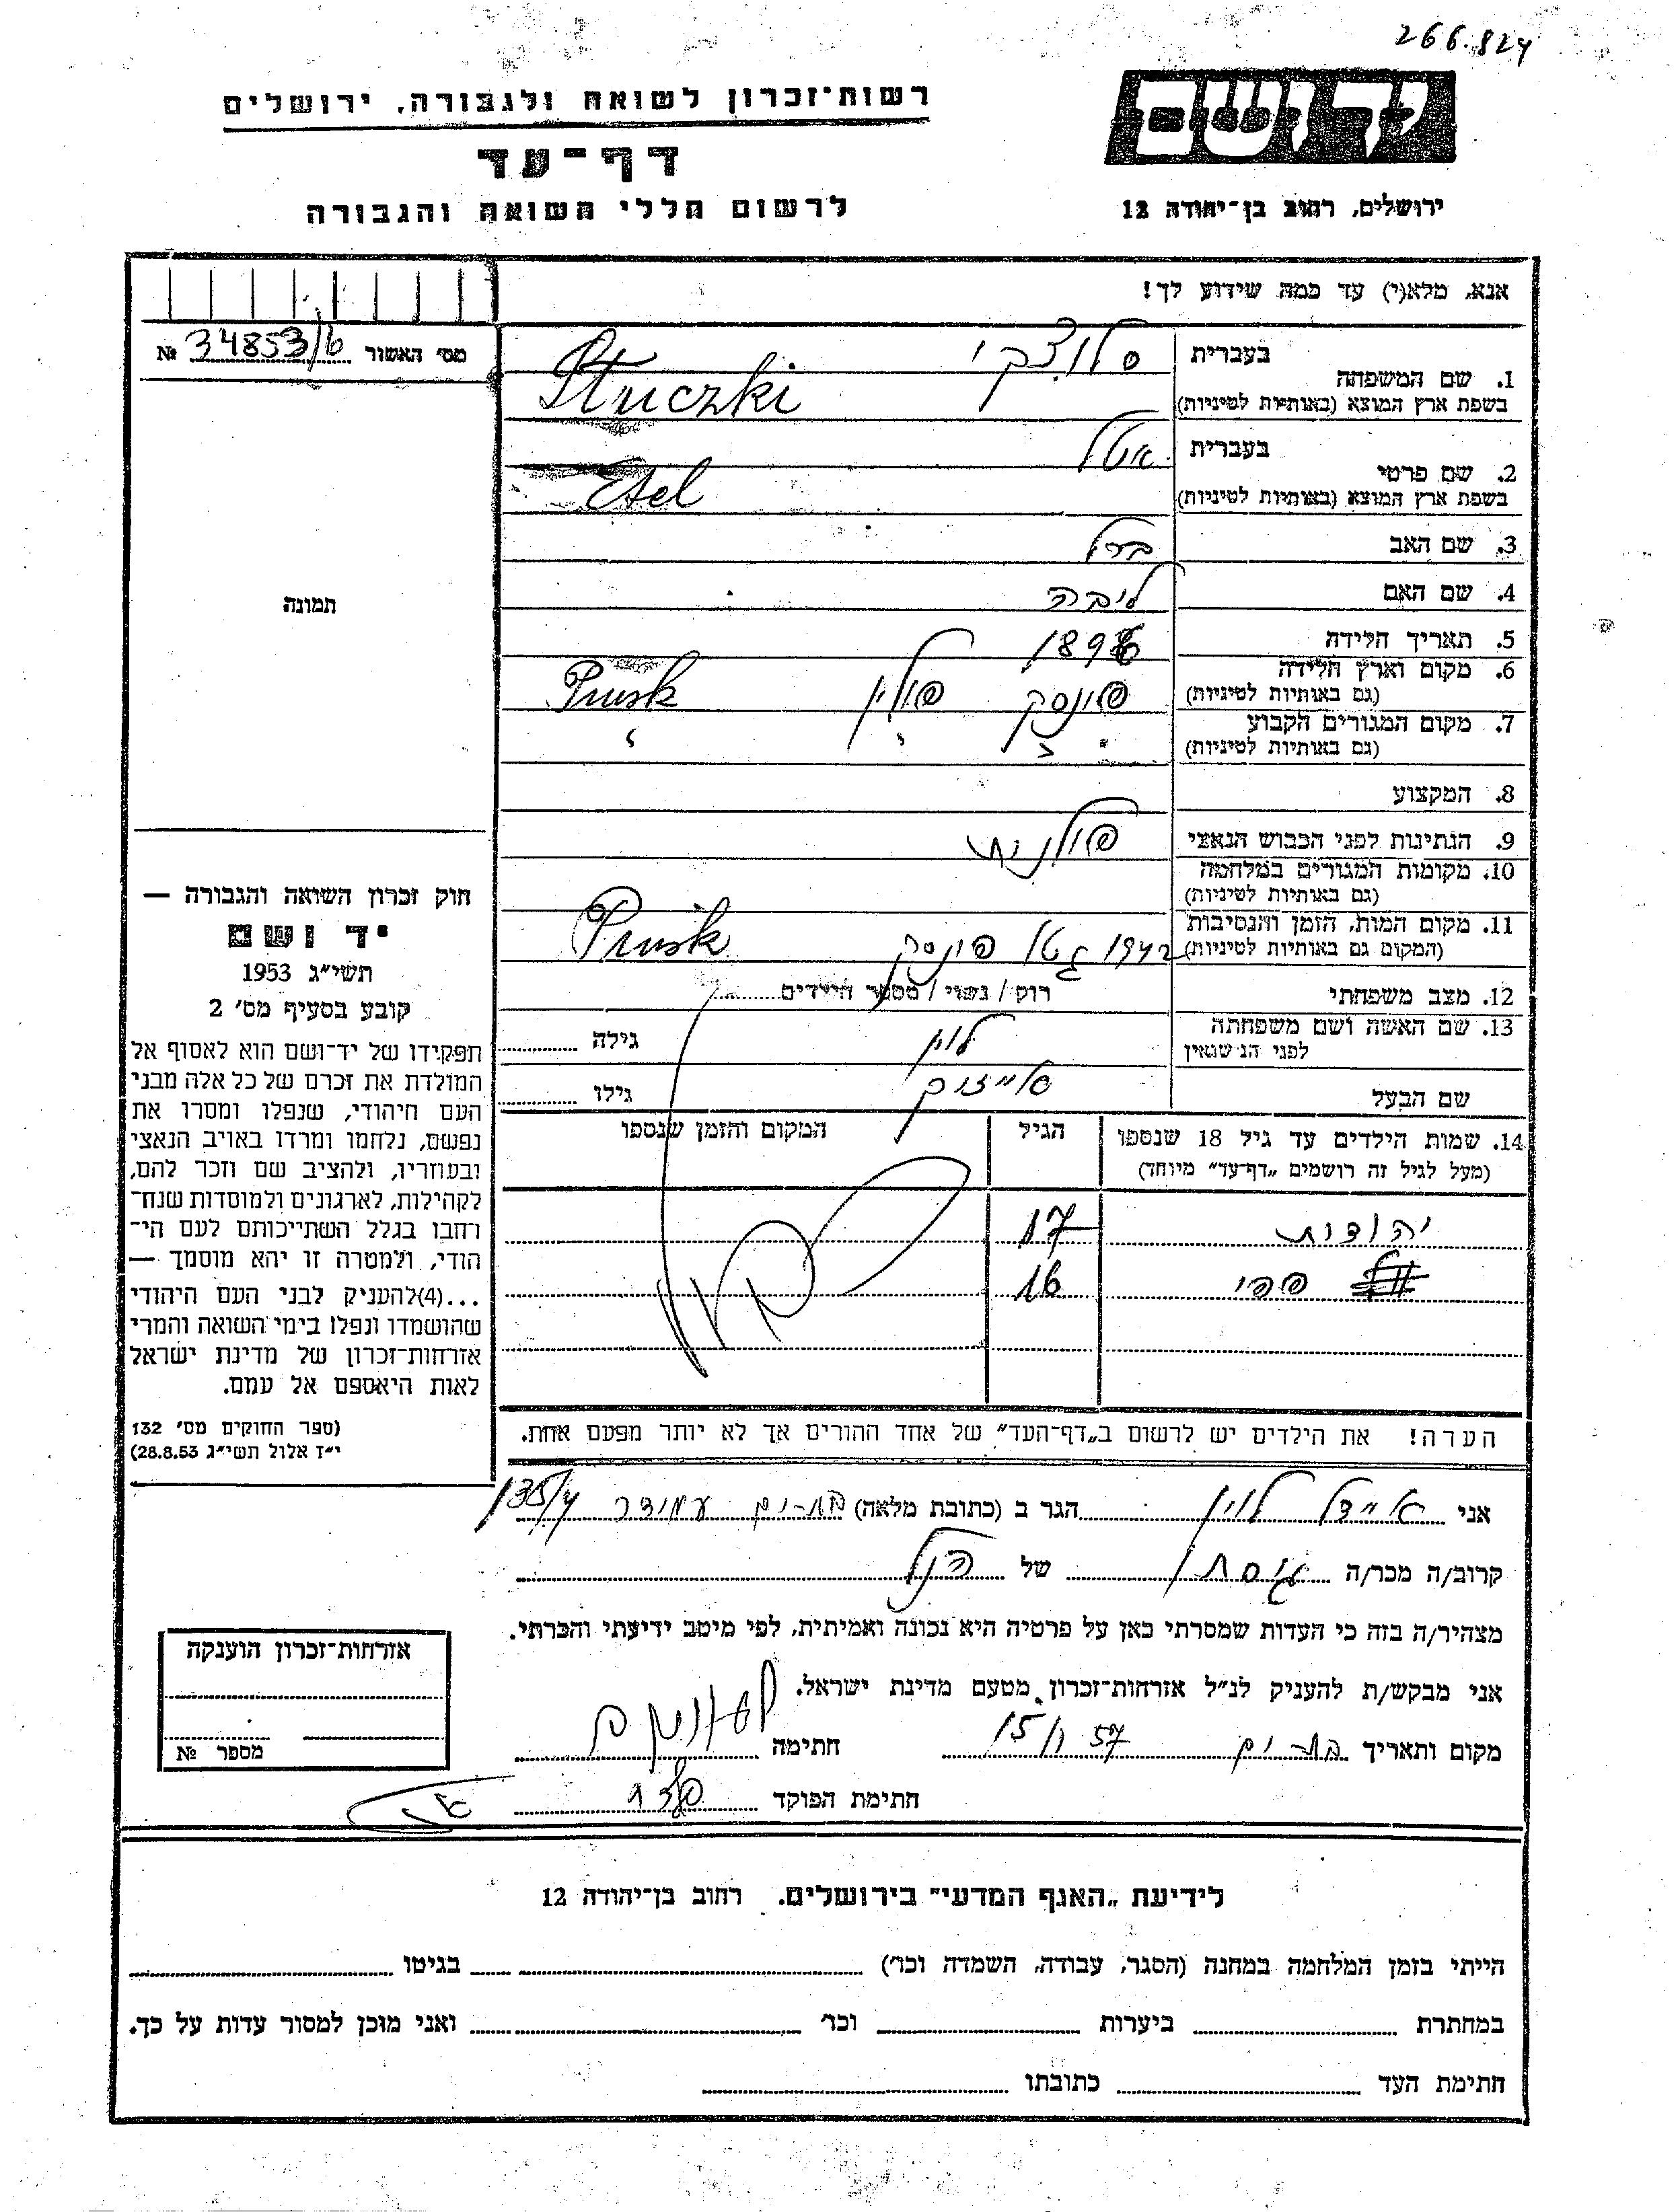 266.824
רשות־זכרון לשואה ולגבורה, ירושלים
יד ושם
דף־עד
לרשום חללי השואה והגבורה
ירושלים, רחוב בן־יהודה 12
אנא, מלא(י) עד כמה שידוע לך!
מס׳ האשור № 34853/6
1. שם המשפחה
בעברית סלוצקי
בשפת ארץ המוצא (באותיות לטיניות) Sluczki
2. שם פרטי
בעברית אטל
בשפת ארץ המוצא (באותיות לטיניות) Etel
3. שם האב ברל
4. שם האם ליבה
תמונה
5. תאריך הלידה 1896
6. מקום וארץ הלידה (גם באותיות לטיניות) פינסק פולין Pinsk
7. מקום המגורים הקבוע (גם באותיות לטיניות) " " "
8. המקצוע
9. הנתינות לפני הכבוש הנאצי פולנית
10. מקומות המגורים במלחמה (גם באותיות לטיניות)
11. מקום המות, הזמן והנסיבות (המקום גם באותיות לטיניות) 1942 גטו פינסק Pinsk
12. מצב משפחתי רוק / נשוי / מספר הילדים
13. שם האשה ושם משפחתה לפני הנישואין לוין גילה
שם הבעל גילו
14. שמות הילדים עד גיל 18 שנספו
(מעל לגיל זה רושמים „דף־עד” מיוחד)
הגיל
המקום והזמן שנספו
יהודית 17
פפי 16
הערה! את הילדים יש לרשום ב„דף־העד” של אחד ההורים אך לא יותר מפעם אחת.
חוק זכרון השואה והגבורה —
יד ושם
תשי״ג 1953
קובע בסעיף מס׳ 2
תפקידו של יד־ושם הוא לאסוף אל
המולדת את זכרם של כל אלה מבני
העם היהודי, שנפלו ומסרו את
נפשם, נלחמו ומרדו באויב הנאצי
ובעוזריו, ולהציב שם וזכר להם,
לקהילות, לארגונים ולמוסדות שנח־
רבו בגלל השתייכותם לעם הי־
הודי, ולמטרה זו יהא מוסמך —
...(4)להעניק לבני העם היהודי
שהושמדו ונפלו בימי השואה והמרי
אזרחות־זכרון של מדינת ישראל
לאות היאספם אל עמם.
(ספר החוקים מס׳ 132
י״ז אלול תשי״ג 28.8.53)
אני אייזל לוין הגר ב (כתובת מלאה) בת־ים עמידר 135/4
קרוב/ה מכר/ה גיסת של הנ״ל
מצהיר/ה בזה כי העדות שמסרתי כאן על פרטיה היא נכונה ואמיתית, לפי מיטב ידיעתי והכרתי.
אני מבקש/ת להעניק לנ״ל אזרחות־זכרון מטעם מדינת ישראל.
מקום ותאריך בת־ים 15/1 57 חתימה
חתימת הפוקד
אזרחות־זכרון הוענקה
מספר №
לידיעת „האגף המדעי” בירושלים. רחוב בן־יהודה 12
הייתי בזמן המלחמה במחנה (הסגר, עבודה, השמדה וכו׳) בגיטו
במחתרת ביערות וכו׳ ואני מוכן למסור עדות על כך.
חתימת העד כתובתו